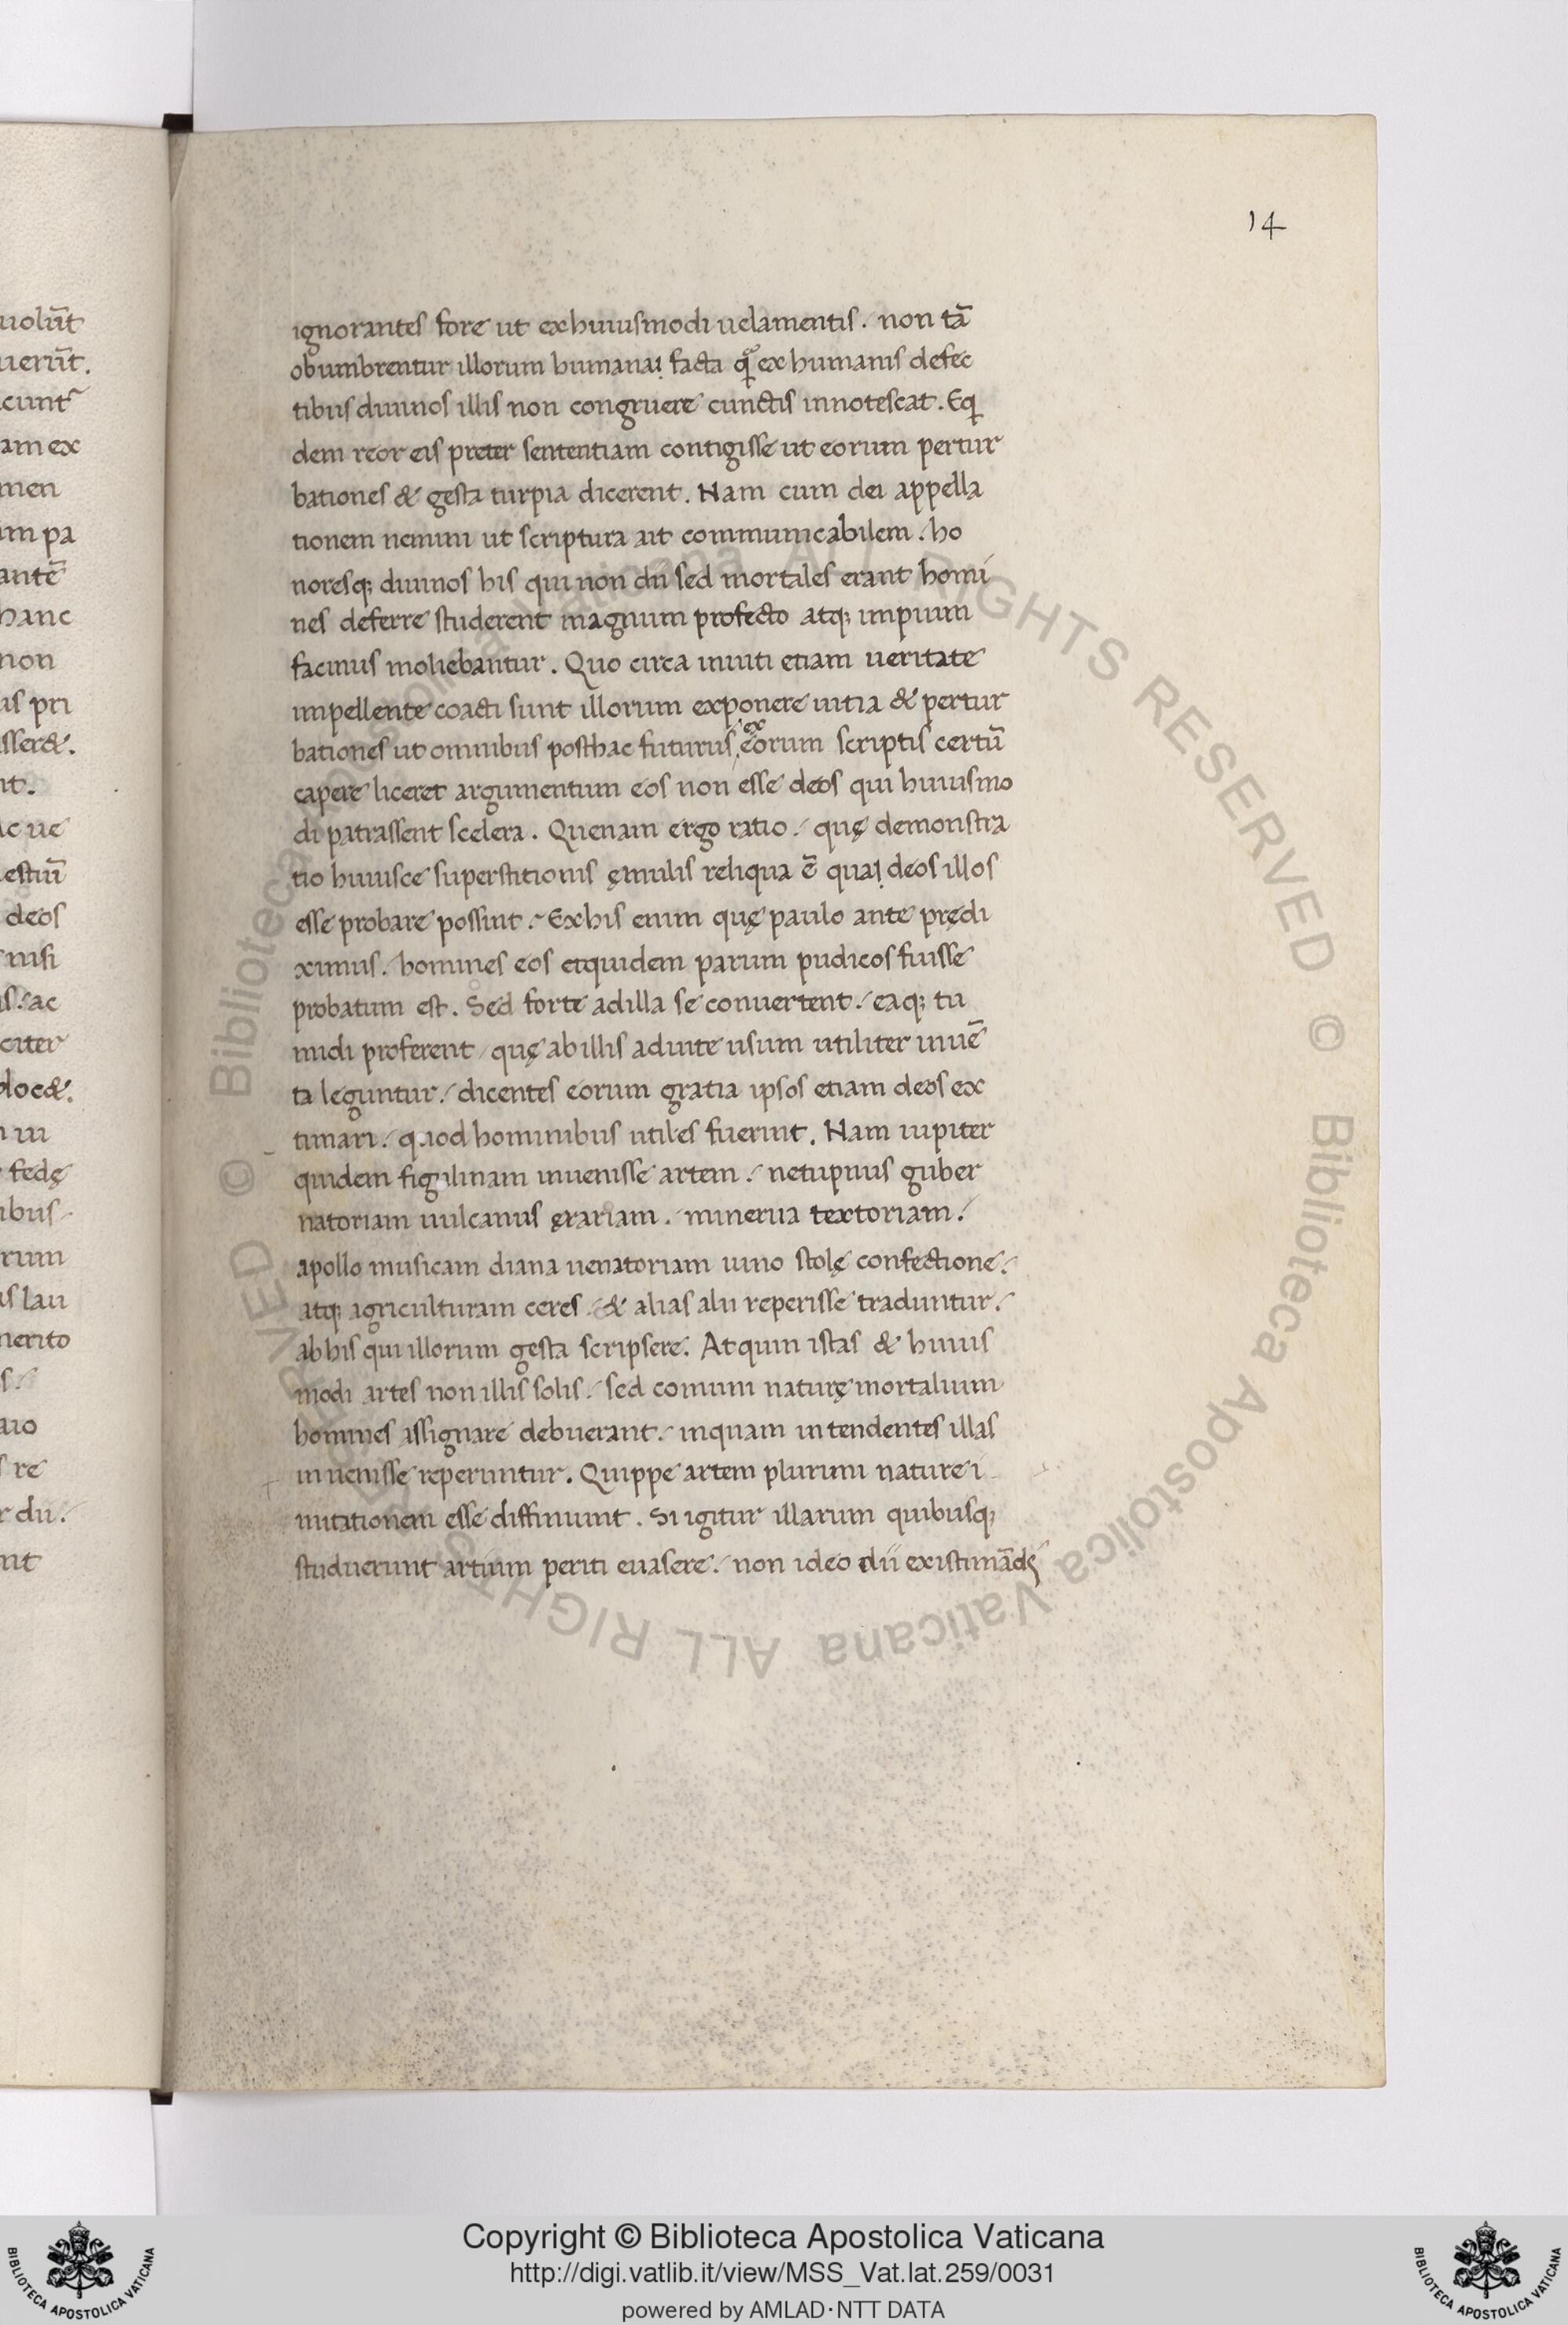 14
uolūt
uerūt.
cunt
am ex
men
um pa
ante
hanc
non
us pri
sser&.
nt.
ac ue
estiū
deos
nisi
s. ac
citer
loc&.
fedę
ibus
rum
us lau
merito
aio
re
r dii.
nt
ignorantes fore ut ex huiusmodi uelamentis. non tā
obumbrentur illorum humana facta ꝗ ex humanis defec
tibus diuinos illis non congruere cunctis innotescat. Eꝗ
dem reor eis preter sententiam contigisse ut eorum pertur
bationes & gesta turpia dicerent. Nam cum dei appella
tionem nemini ut scriptura ait communicabilem. ho
noresq; diuinos his qui non dii sed mortales erant homi
nes deferre studerent magnum profecto atq; impium
facinus moliebantur. Quo circa inuiti etiam ueritate
impellente coacti sunt illorum exponere uitia & pertur
bationes ut omnibus posthac futurus ex eorum scriptis certū
capere liceret argumentum eos non esse deos qui huiusmo
di patrassent scelera. Quenam ergo ratio. quę demonstra
tio huiusce superstitionis ęmulis reliqua ē qua deos illos
esse probare possint. Ex his enim quę paulo ante prędi
ximus. homines eos etquidem parum pudicos fuisse
probatum est. Sed forte ad illa se conuertent. eaq; tu
midi proferent quę ab illis ad uite usum utiliter inuē
ta leguntur. dicentes eorum gratia ipsos etiam deos ex
timari. quod hominibus utiles fuerint. Nam iupiter
quidem figulinam inuenisse artem. netupnus guber
natoriam uulcanus ęrariam. minerua textoriam.
apollo musicam diana uenatoriam iuno stolę confectione.
atq; agriculturam ceres. & alias alii reperisse traduntur.
ab his qui illorum gesta scripsere. Atquin istas & huius
modi artes non illis solis. sed comuni naturę mortalium
homines assignare debuerant. inquam intendentes illas
inuenisse reperiuntur. Quippe artem plurimi nature i
mitationem esse diffiniunt. Si igitur illarum quibusq;
studuerunt artium periti euasere. non ideo dii existimādi
© Biblioteca Apostolica Vaticana ALL RIGHTS RESERVED © Biblioteca Apostolica Vaticana ALL RIGHTS RESERVED
Copyright © Biblioteca Apostolica Vaticana
http://digi.vatlib.it/view/MSS_Vat.lat.259/0031
powered by AMLAD·NTT DATA
BIBLIOTECA APOSTOLICA VATICANA
BIBLIOTECA APOSTOLICA VATICANA